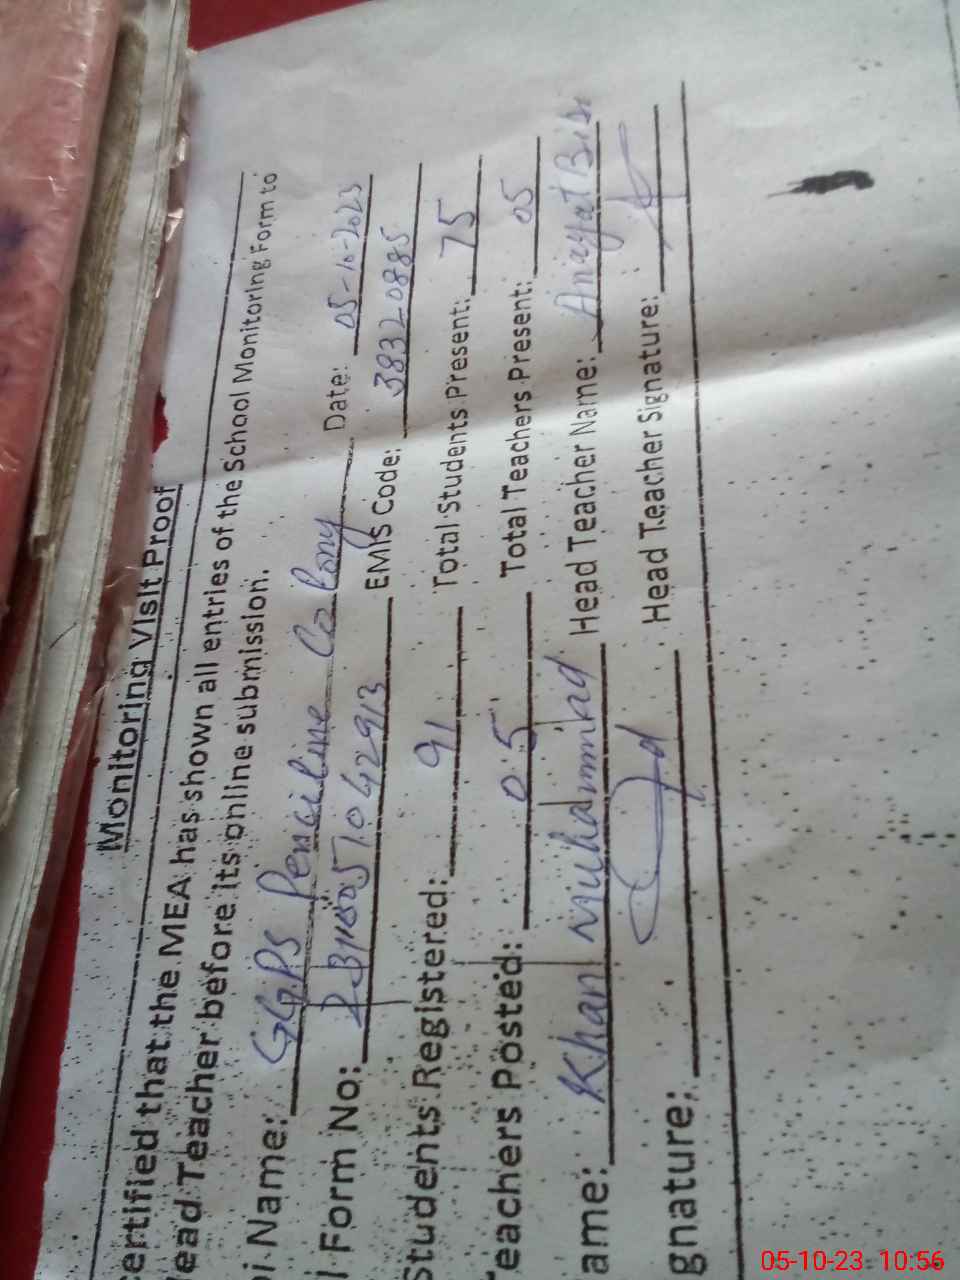 Monitoring Visit Proof
ertified that the MEA has shown all entries of the School Monitoring Form to
ead Teacher before its online submission.
Name: GGPS Penciline Colony Date: 05-10-2023
Form No: 0510642913 EMIS Code: 38320885
Students Registered: 91 Total Students Present: 75
eachers Posted: 05 Total Teachers Present: 05
ame: Khan Muhammad Head Teacher Name: Anayat Bibi
gnature: Head Teacher Signature:
05-10-23 10:56